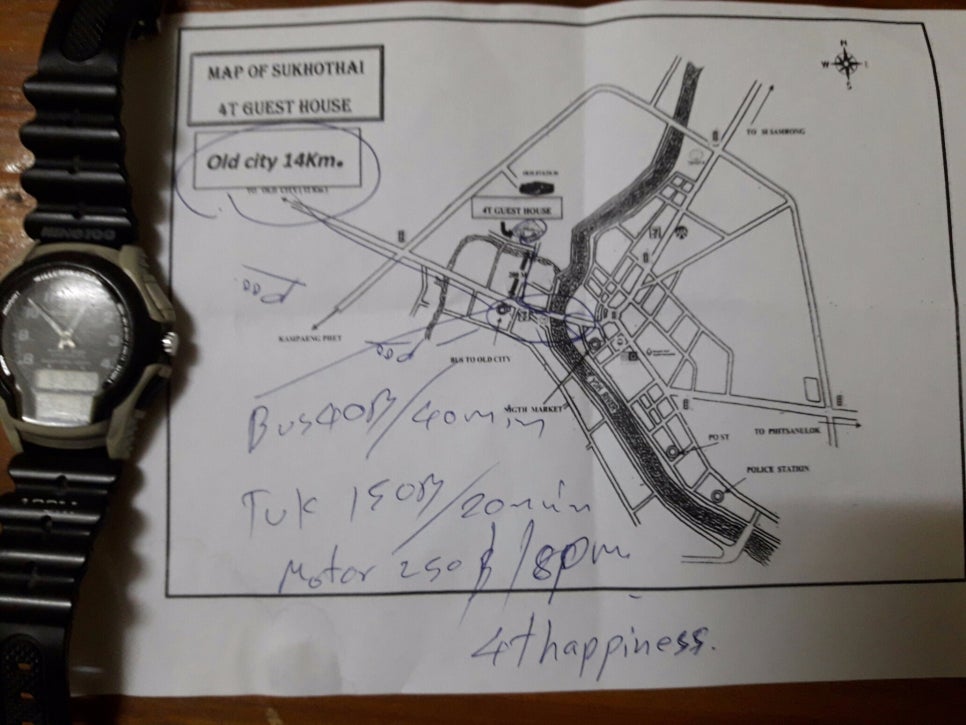 MAP OF SUKHOTHAI
4T GUEST HOUSE
Old city 14Km.
TO OLD CITY(12 KM.)
N
W
S
TO SI SAMRONG
BUS STATION
4T GUEST HOUSE
KAMPAENG PHET
BUS TO OLD CITY
NIGTH MARKET
YOM RIVER
TO PHITSANULOK
POST
POLICE STATION
Bus 40B/40min
Tuk 150B/20min
Motor 250B/8pm
4thappiness.
10
8
4
100M